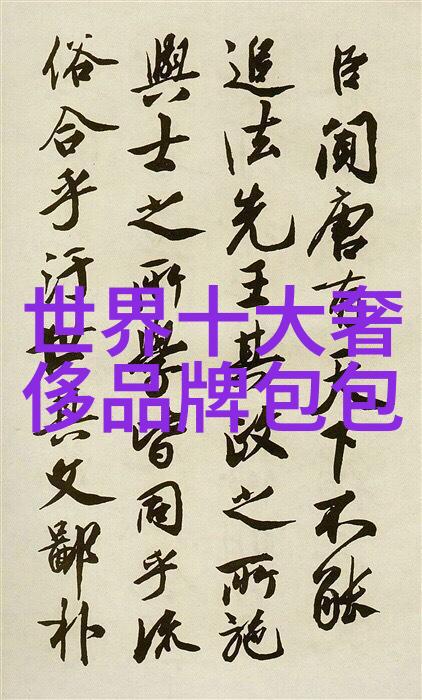 世界十大奢
侈品牌包包
臣聞唐有天下不能
追法先王其政之所施
與士之所學皆同乎流
俗合乎汙世其文鄙朴